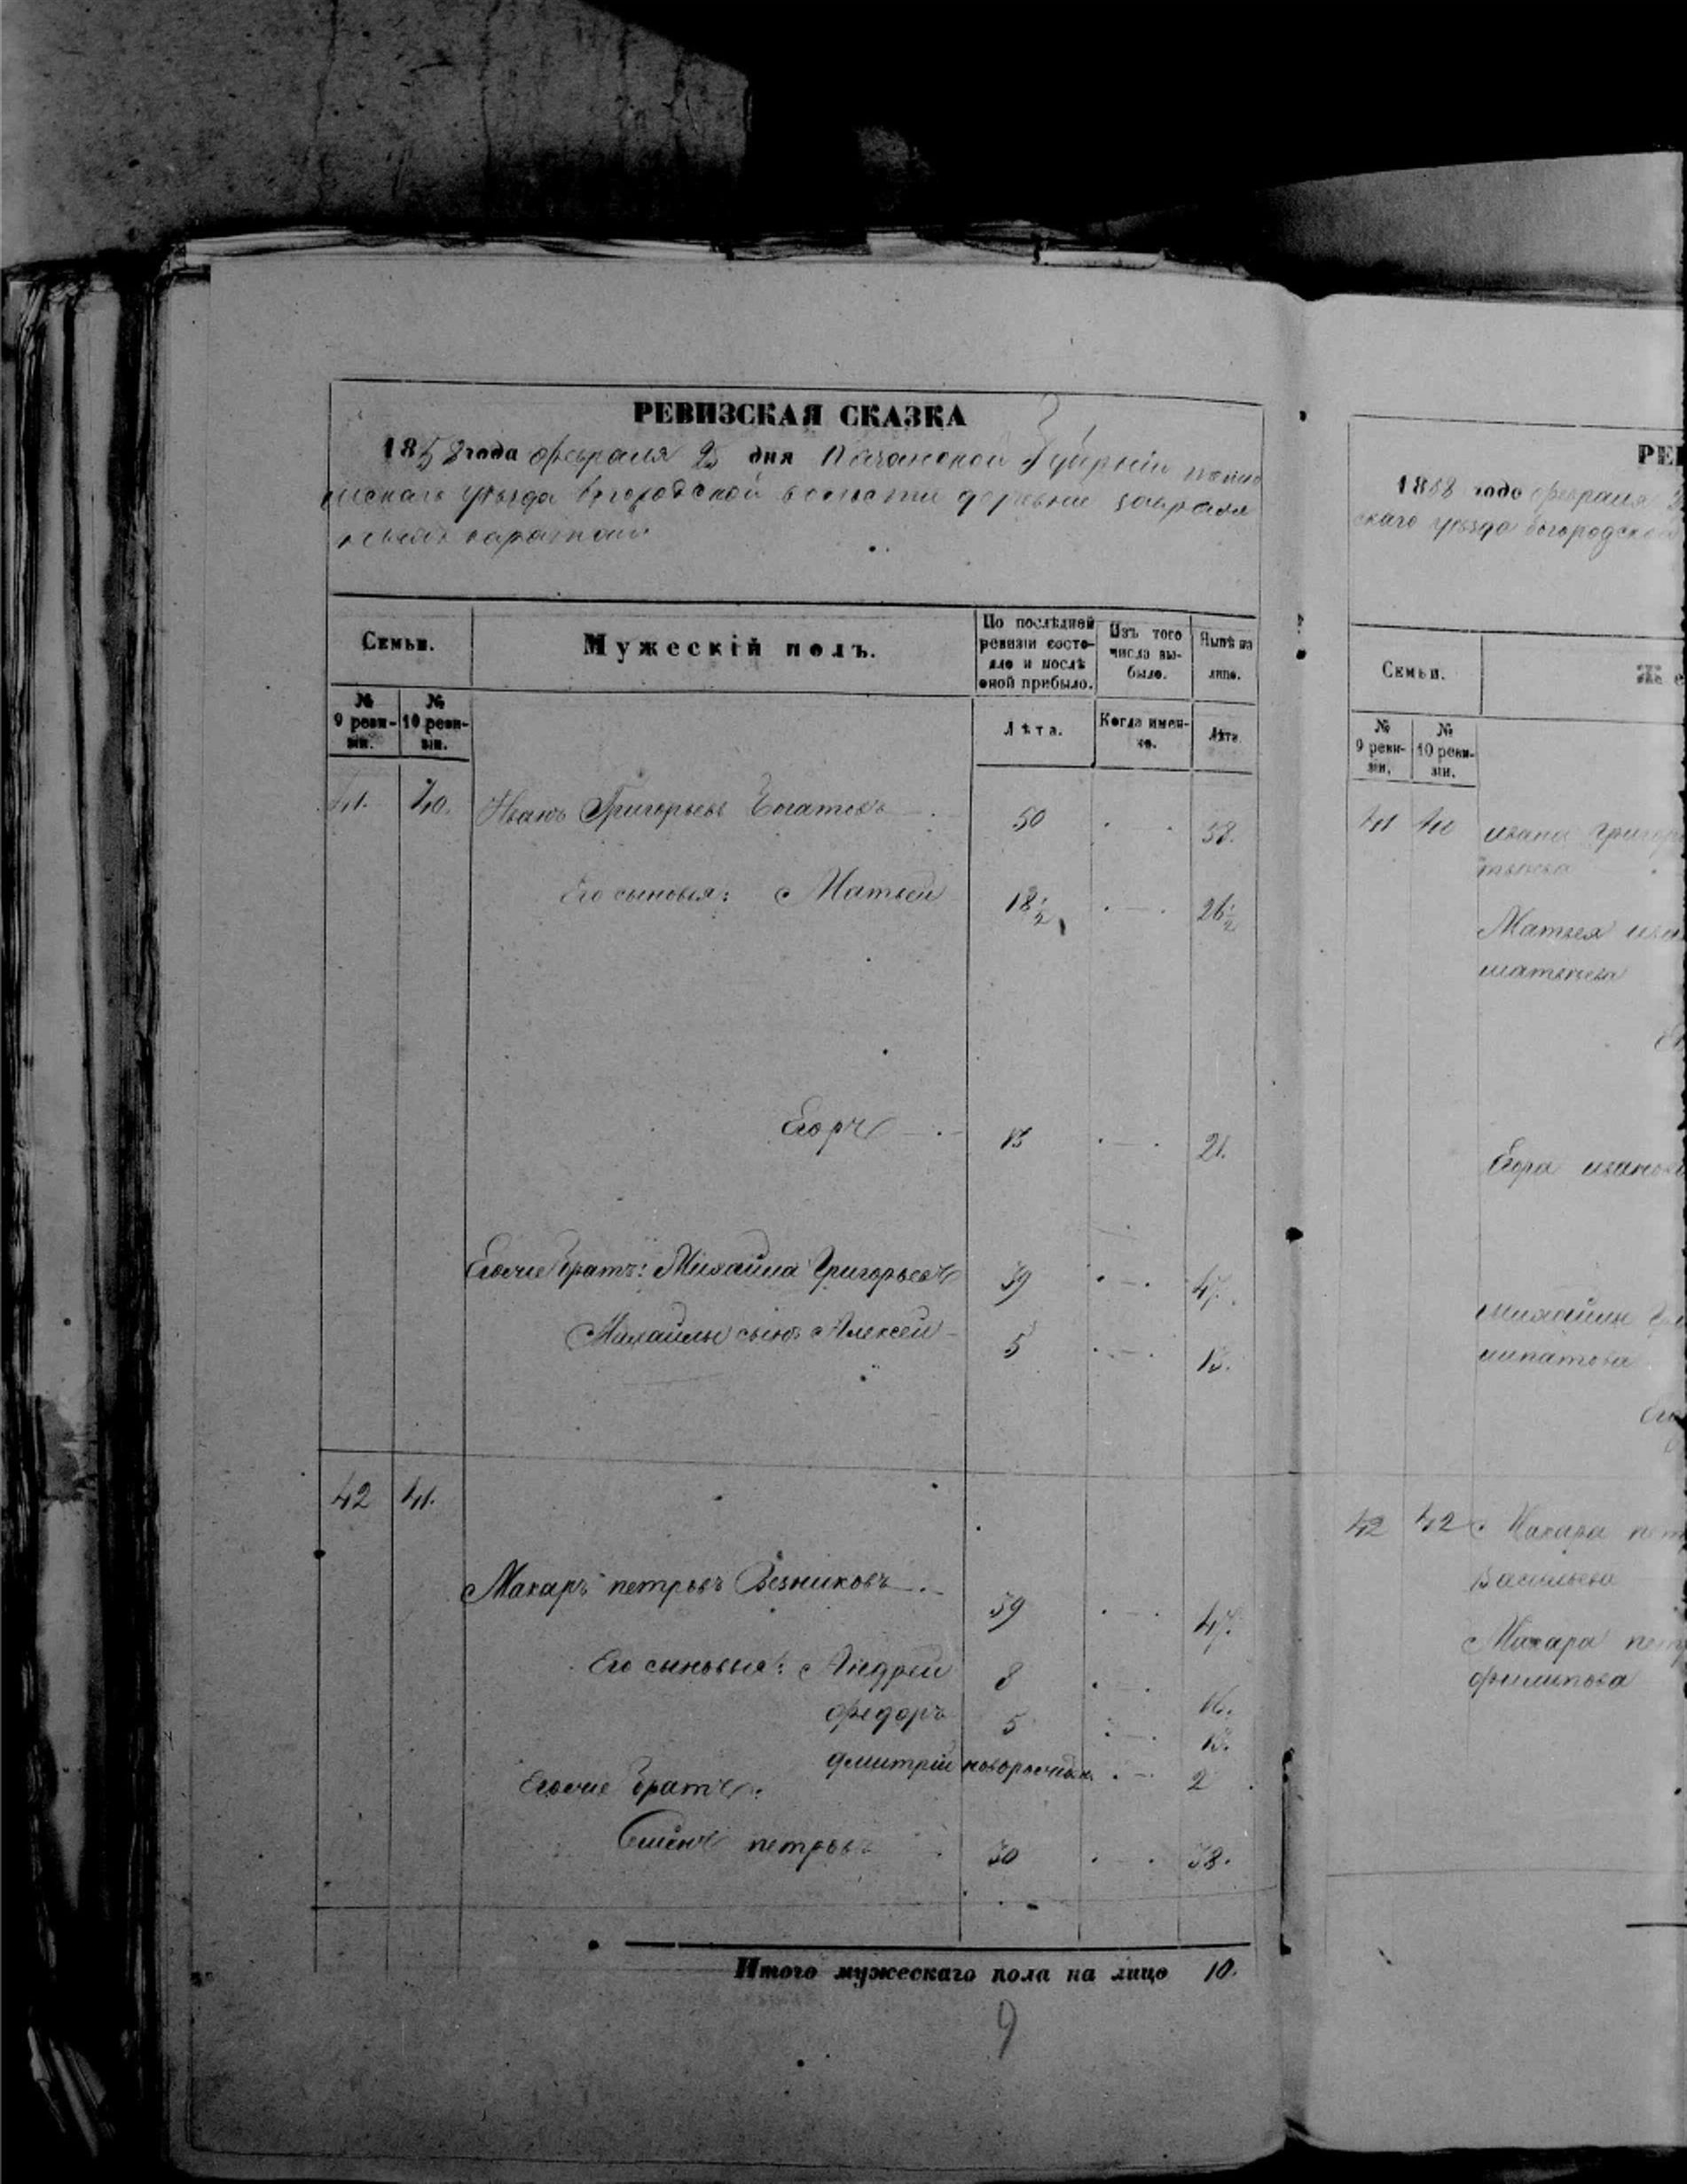 РЕВИЗСКАЯ СКАЗКА
1858 года февраля 25 дня Казанской Губерніи
уѣзда Богородской волости деревни
Семьи.
Мужескій полъ.
По послѣдней ревизіи состояло и послѣ оной прибыло.
Изъ того числа выбыло.
Нынѣ на лицо.
№ 9 ревизіи.
№ 10 ревизіи.
Лѣта.
Когда именно.
Лѣта.
41. 40. Иванъ Григорьевъ Богатовъ 50 58.
Его сыновья: Матвей 18 1/2 26 1/2
Егоръ 13 21.
Егоже Братъ: Михайла Григорьевъ 39 47.
Михайлы сынъ Алексей 5 13.
42 41.
Макаръ петровъ Резниковъ 39 47.
Его сыновья: Андрей 8 16.
федоръ 5 13.
дмитрій новорожден 2
Егоже Братъ:
Семенъ петровъ 30 38.
Итого мужескаго пола на лицо 10.
9
РЕ
1858 года февраля 2
скаго уѣзда богородской
Семьи.
Же
№ 9 ревизіи.
№ 10 ревизіи.
41 40 ивана Григор
Матвея ива
матвеева
Егора иванов
михайлы
ипатова
42 42 Макара пет
Васильева
Макара пет
филипова